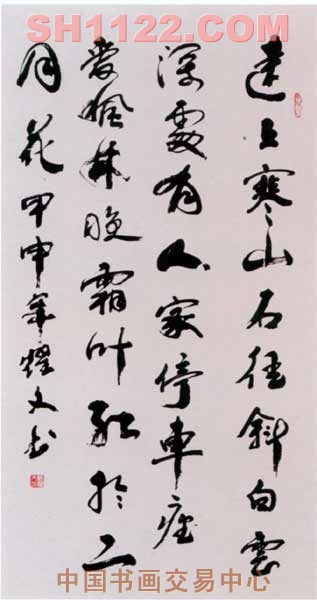 SH1122.COM
远上寒山石径斜白云
深处有人家停车坐
爱枫林晚霜叶红于二
月花甲申年耀文书
中国书画交易中心